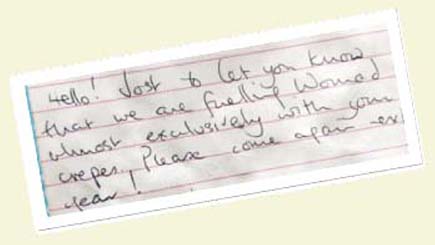 Hello! Just to let you know
that we are fuelling Womad
almost exclusively with your
crepes. Please come again
year!